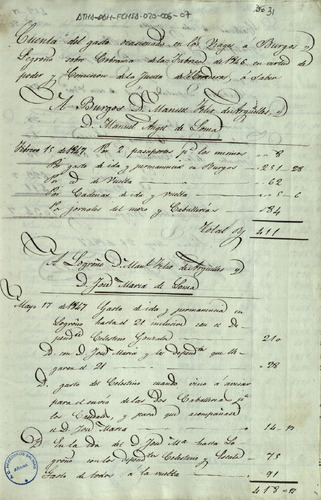 ATHA-DAH-FCMSA-020-006-07
Nº 31
Cuenta del gasto ocasionado en los Viages a Burgos y
Logroño sobre Cobranza de las de 1846 en virtud de
poder y Comision de la Junta de, a Saber
A Burgos D. Manuel Felix de Argüelles y
D. Manuel Angel de Loma
Febrero 15 de 1847 Por 2 pasaportes pª los mismos 8
Por gasto de ida y permanencia en Burgos 251 28
Por id de vuelta 62
Por Cadenas de ida y vuelta 5 6
Por jornales del mozo y Caballerias 84
Total Rs 411
A Logroño D. Manl Felix de Argüelles y
D. José Maria de Loma
Mayo 17 de 1847 Gasto de ida y permanencia en
Logroño hasta el 21 inclusive con el de
pendte Celestino Gonzalez 210
D. m D José Maria y los dependtes que lle
garon el 21 28
D. gasto del Celestino cuando vino a avisar
para el envio de las dos Caballerias pª
los Caudales, y para que acompañase
el D José Maria 14
De la ida del D José Mª hasta Lo
groño con los dependtes Celestino y 75
Gasto de todos a la vuelta 91
418